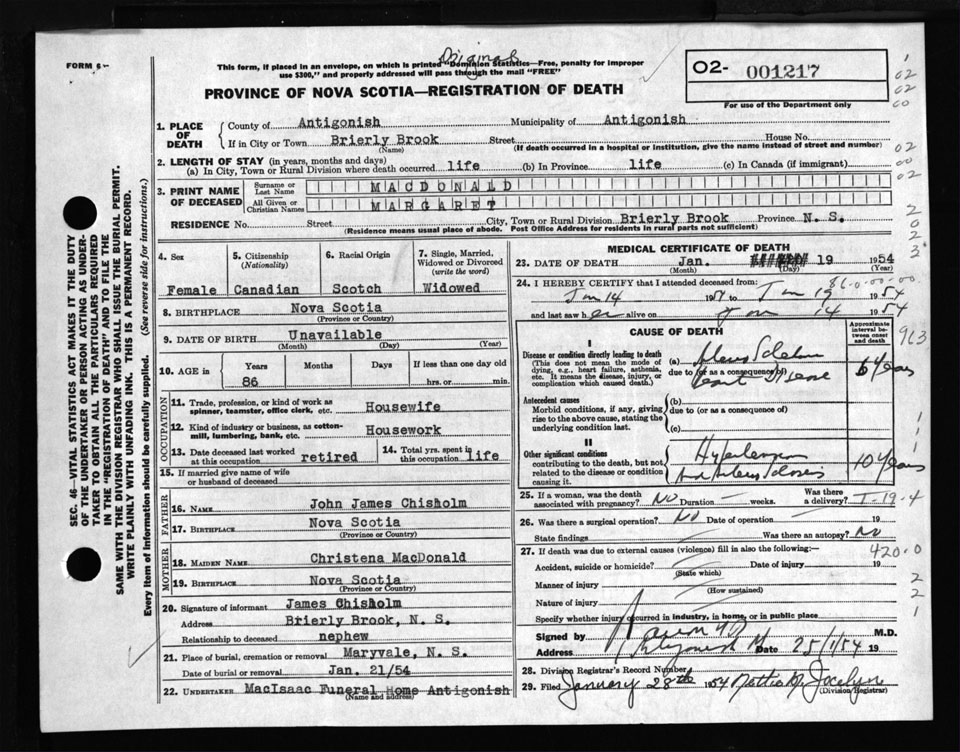 FORM 6-
Original
This form, if placed in an envelope, on which is printed "Dominion Statistics—Free, penalty for improper
use $300," and properly addressed will pass through the mail "FREE"
PROVINCE OF NOVA SCOTIA—REGISTRATION OF DEATH
02- 001217
For use of the Department only
1. PLACE OF DEATH
County of Antigonish Municipality of Antigonish
If in City or Town Brierly Brook Street House No.
(Name) (If death occurred in a hospital or institution, give the name instead of street and number)
2. LENGTH OF STAY (in years, months and days)
(a) In City, Town or Rural Division where death occurred life (b) In Province life (c) In Canada (if immigrant)
3. PRINT NAME OF DECEASED
Surname or Last Name MACDONALD
All Given or Christian Names MARGARET
RESIDENCE No. Street City, Town or Rural Division Brierly Brook Province N. S.
(Residence means usual place of abode. Post Office Address for residents in rural parts not sufficient)
4. Sex Female
5. Citizenship (Nationality) Canadian
6. Racial Origin Scotch
7. Single, Married, Widowed or Divorced (write the word) Widowed
8. BIRTHPLACE Nova Scotia
(Province or Country)
9. DATE OF BIRTH Unavailable
(Month) (Day) (Year)
10. AGE in Years 86 Months Days If less than one day old hrs. or min.
OCCUPATION
11. Trade, profession, or kind of work as spinner, teamster, office clerk, etc. Housewife
12. Kind of industry or business, as cotton-mill, lumbering, bank, etc. Housework
13. Date deceased last worked at this occupation retired
14. Total yrs. spent in this occupation life
15. If married give name of wife or husband of deceased
FATHER
16. NAME John James Chisholm
17. BIRTHPLACE Nova Scotia
(Province or Country)
MOTHER
18. MAIDEN NAME Christena MacDonald
19. BIRTHPLACE Nova Scotia
(Province or Country)
20. Signature of informant James Chisholm
Address Brierly Brook, N. S.
Relationship to deceased nephew
21. Place of burial, cremation or removal Maryvale, N. S.
Date of burial or removal Jan. 21/54
22. UNDERTAKER MacIsaac Funeral Home Antigonish
(Name and address)
MEDICAL CERTIFICATE OF DEATH
23. DATE OF DEATH Jan. 19 1954
(Month) (Day) (Year)
24. I HEREBY CERTIFY that I attended deceased from:
Jan 14 1954 to Jan 19 1954
and last saw her alive on Jan 14 1954
CAUSE OF DEATH
Approximate interval between onset and death
I
Disease or condition directly leading to death
(This does not mean the mode of dying, e.g., heart failure, asthenia, etc. It means the disease, injury, or complication which caused death.)
(a)
due to (or as a consequence of)
Heart Disease 6 years
Antecedent causes
Morbid conditions, if any, giving rise to the above cause, stating the underlying condition last.
(b)
due to (or as a consequence of)
(c)
II
Other significant conditions
contributing to the death, but not related to the disease or condition causing it.
Hypertension 10 years
25. If a woman, was the death associated with pregnancy? No Duration weeks. Was there a delivery?
26. Was there a surgical operation? No Date of operation 19
State findings Was there an autopsy? No
27. If death was due to external causes (violence) fill in also the following:—
Accident, suicide or homicide? Date of injury 19
(State which)
Manner of injury
(How sustained)
Nature of injury
Specify whether injury occurred in industry, in home, or in public place
Signed by M.D.
Address Antigonish Date 25/1/54 19
28. Division Registrar's Record Number
29. Filed January 28th 1954
(Division Registrar)
SEC. 46—VITAL STATISTICS ACT MAKES IT THE DUTY
OF THE UNDERTAKER OR PERSON ACTING AS UNDER-
TAKER TO OBTAIN ALL THE PARTICULARS REQUIRED
IN THE "REGISTRATION OF DEATH" AND TO FILE THE
SAME WITH THE DIVISION REGISTRAR WHO SHALL ISSUE THE BURIAL PERMIT.
WRITE PLAINLY WITH UNFADING INK. THIS IS A PERMANENT RECORD.
Every item of Information should be carefully supplied. (See reverse side for instructions.)
420.0